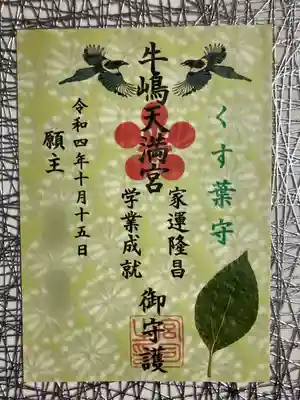 くす葉守
家運隆昌
学業成就
牛嶋天満宮
御守護
令和四年十月十五日
願主